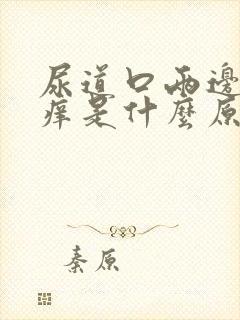 尿道口兩邊
痒是什麼原
秦原